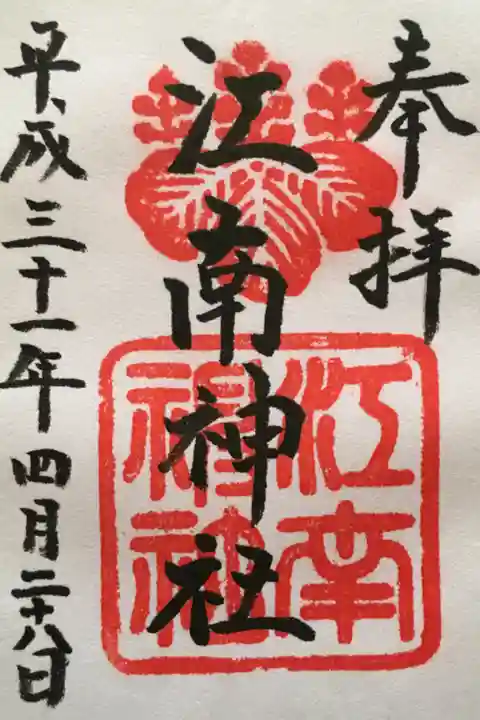 奉拝
江南神社
江南
神社
平成三十一年四月二十八日